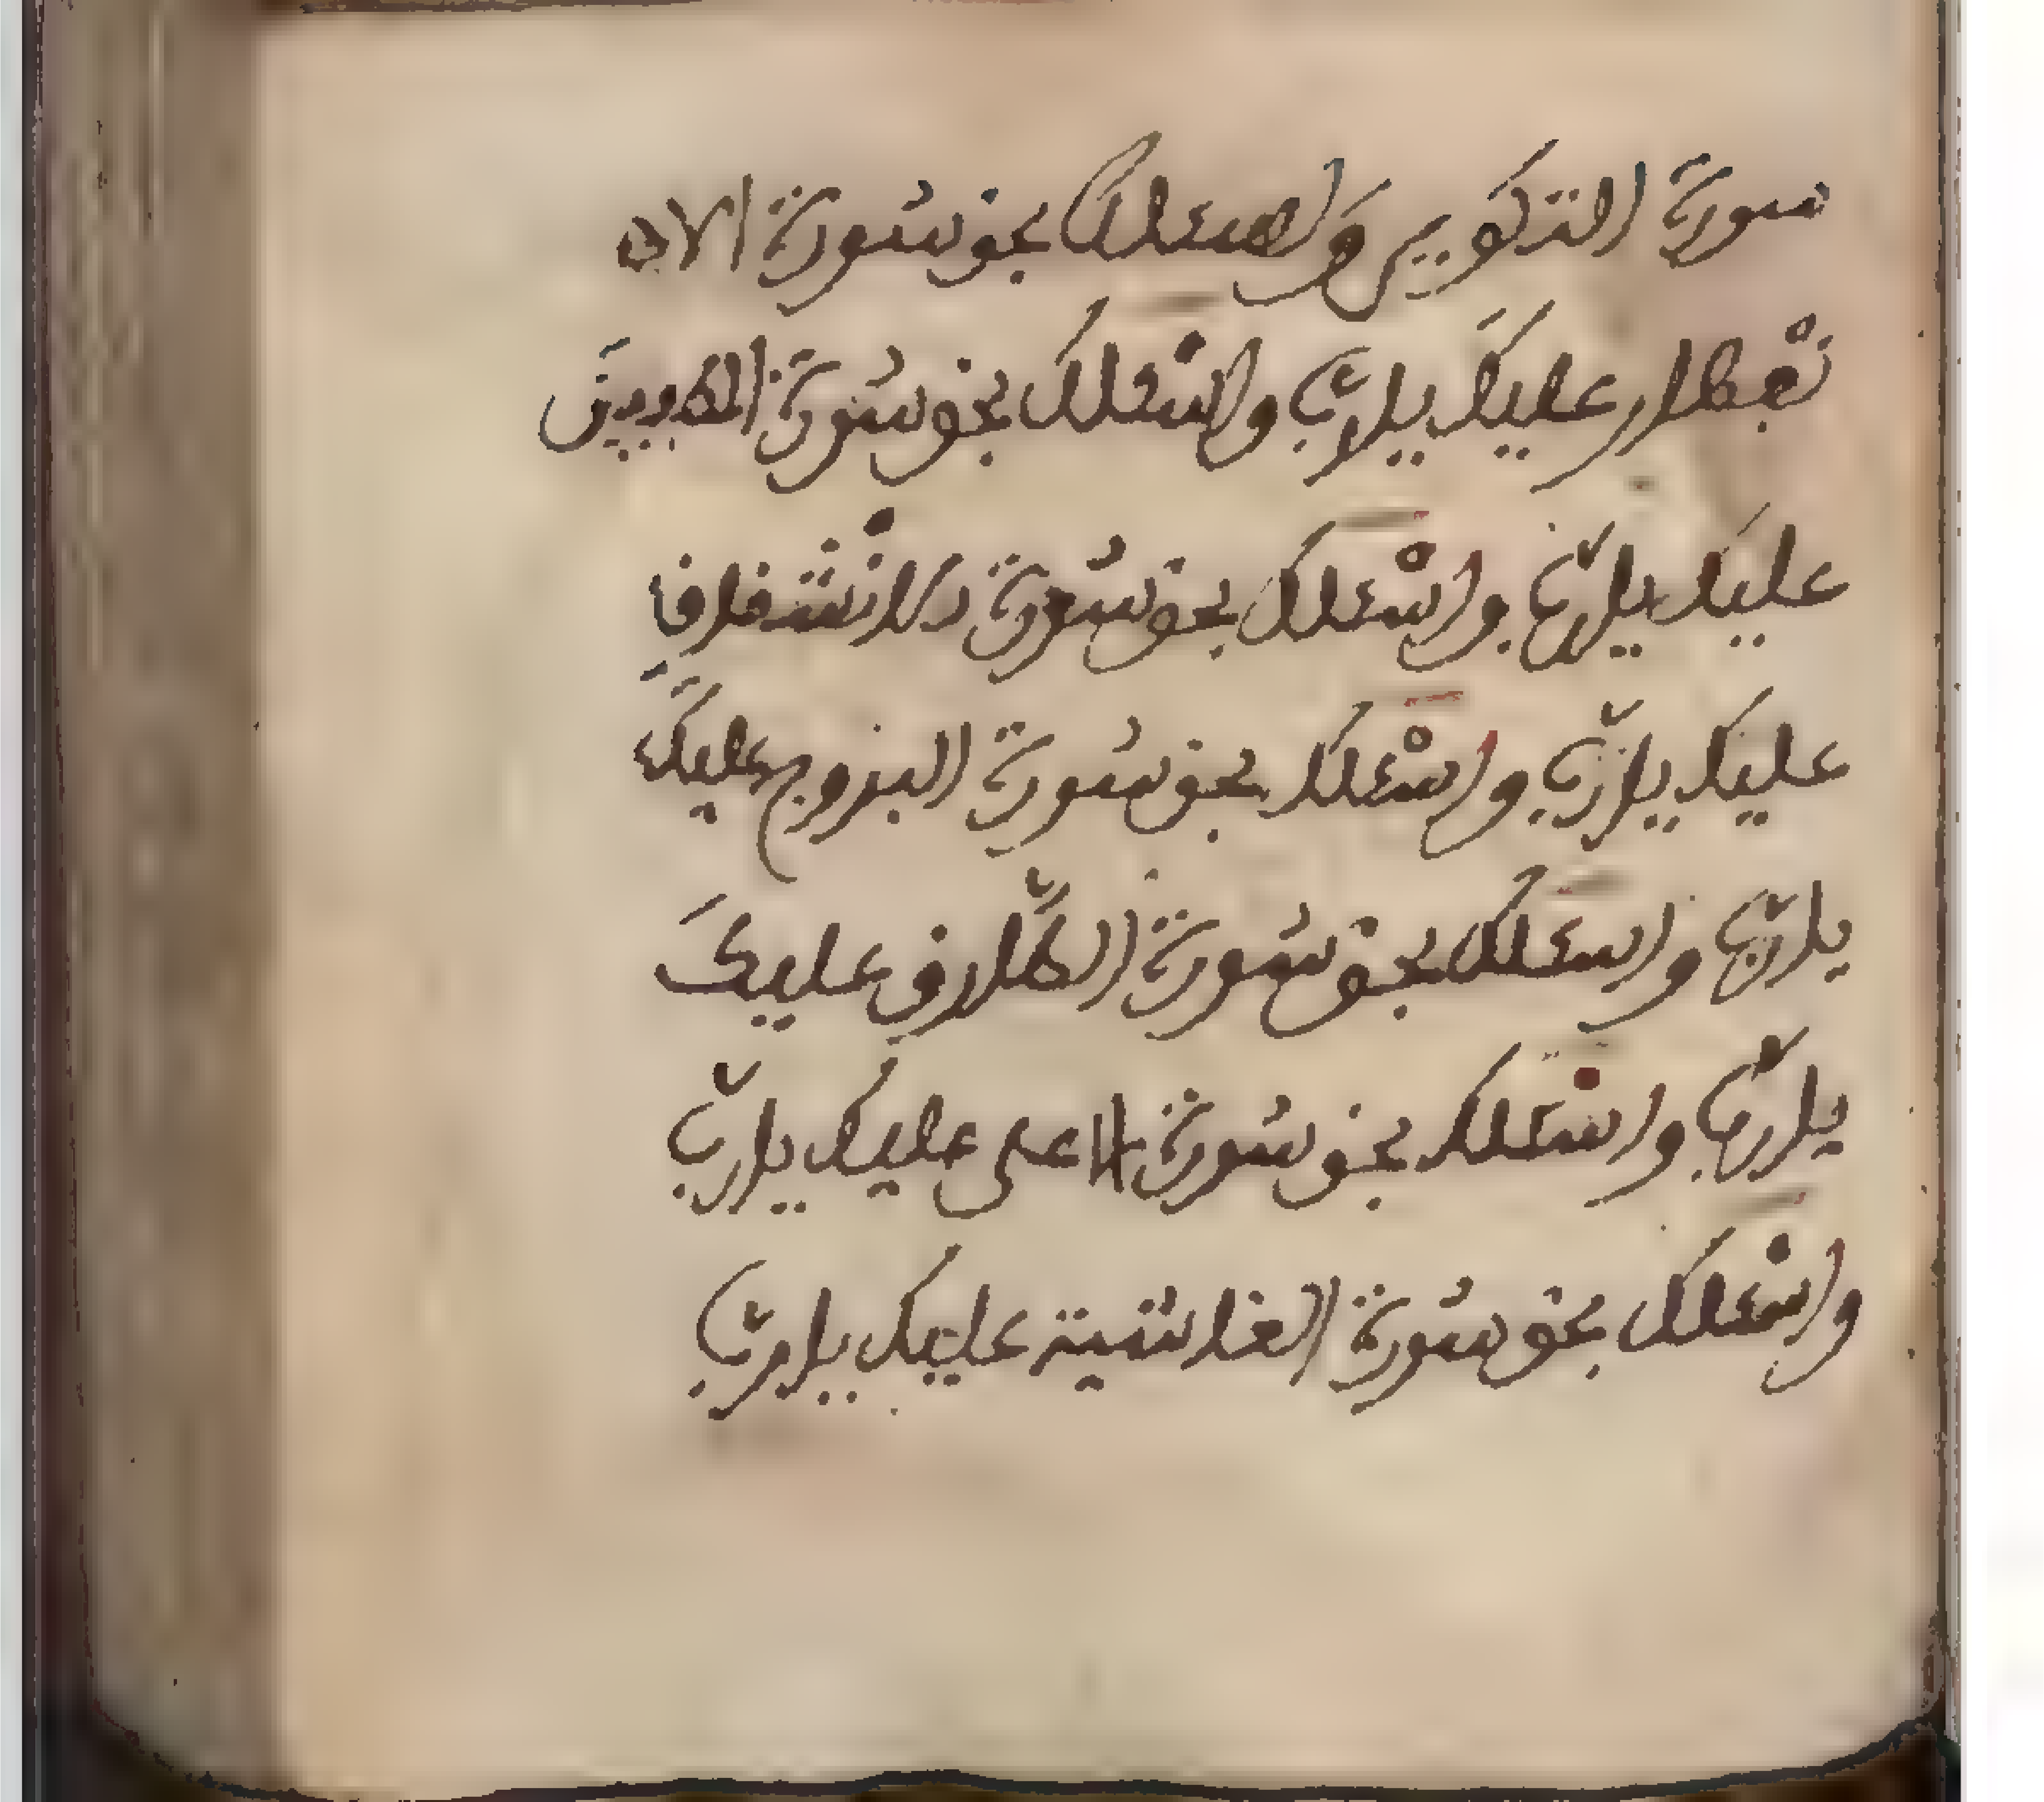 سورة التكوير واسئلك بحق سورة الان
نفطار عليك يارب واسئلك بحق سورة المطففين
عليك يارب واسئلك بحق سورة الانشقاق
عليك يارب واسئلك بحق سورة البروج عليك
يارب واسئلك بحق سورة الطارق عليك
يارب واسئلك بحق سورة الاعلى عليك يارب
واسئلك بحق سورة الغاشية عليك يارب